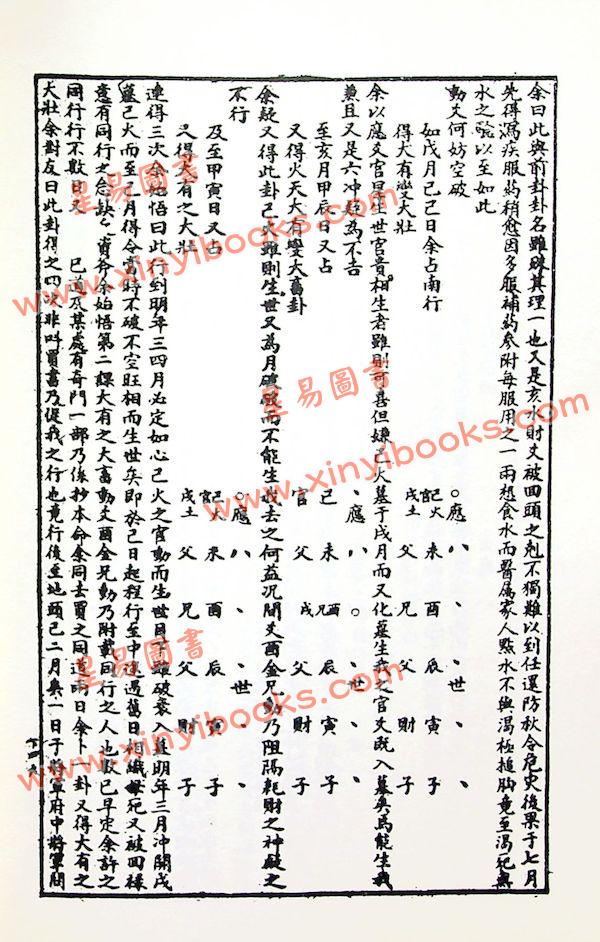 余曰此與前卦卦名雖殊其理一也又是亥水財爻被回頭之剋不獨難以到任還防秋令危灾後果于七月
先得瀉疾服药稍愈因多服補药參附每服用之一兩想食水而醫属家人點水不與渴極搥胸竟至渴死無
水之驗以至如此
動爻何妨空破
如戌月己巳日余占南行
得大有變大壯
官巳火 父未 兄酉 父辰 財寅 子子
戌土
應 世
余以應爻官星生世官貴相生者雖則可喜但嫌巳火墓于戌月而又化墓生我之官爻既入墓矣焉能生我
兼且又是六冲越為不吉
至亥月甲辰日又占
又得火天大有變大畜卦
官巳 父未 兄酉 父辰 財寅 子子
戌
應 世
余疑又得此卦巳火雖則生世又為月破破而不能生我去之何益况間爻酉金兄動乃阻隔耗財之神疑之
不行
及至甲寅日又占
又得大有之大壯
官巳火 父未 兄酉 父辰 財寅 子子
戌土
應 世
連得三次余始悟曰此行到明年三四月必定如心巳火之官動而生世目下雖破衰入墓明年三月冲開戌
墓巳火而至巳月得令當時不破不空旺相而生世矣即於巳日起程行至中途遇舊日相識母死又被回祿
意有同行之念缺乏資斧余始悟第二課大有之大畜動爻酉金兄動乃附載同行之人也數已早定余許之
同行行不數日又 巴道及某處有奇門一部乃係抄本命余同去買之同道兩日余卜一卦又得大有之
大壯余對友曰此卦得之四次非叫買書乃促我之行也竟行後至地頭已二月矣一日于將軍府中將軍問
星易圖書
www.xinyibooks.com
星易圖書
www.xinyibooks.com
星易圖書
www.xinyibooks.com